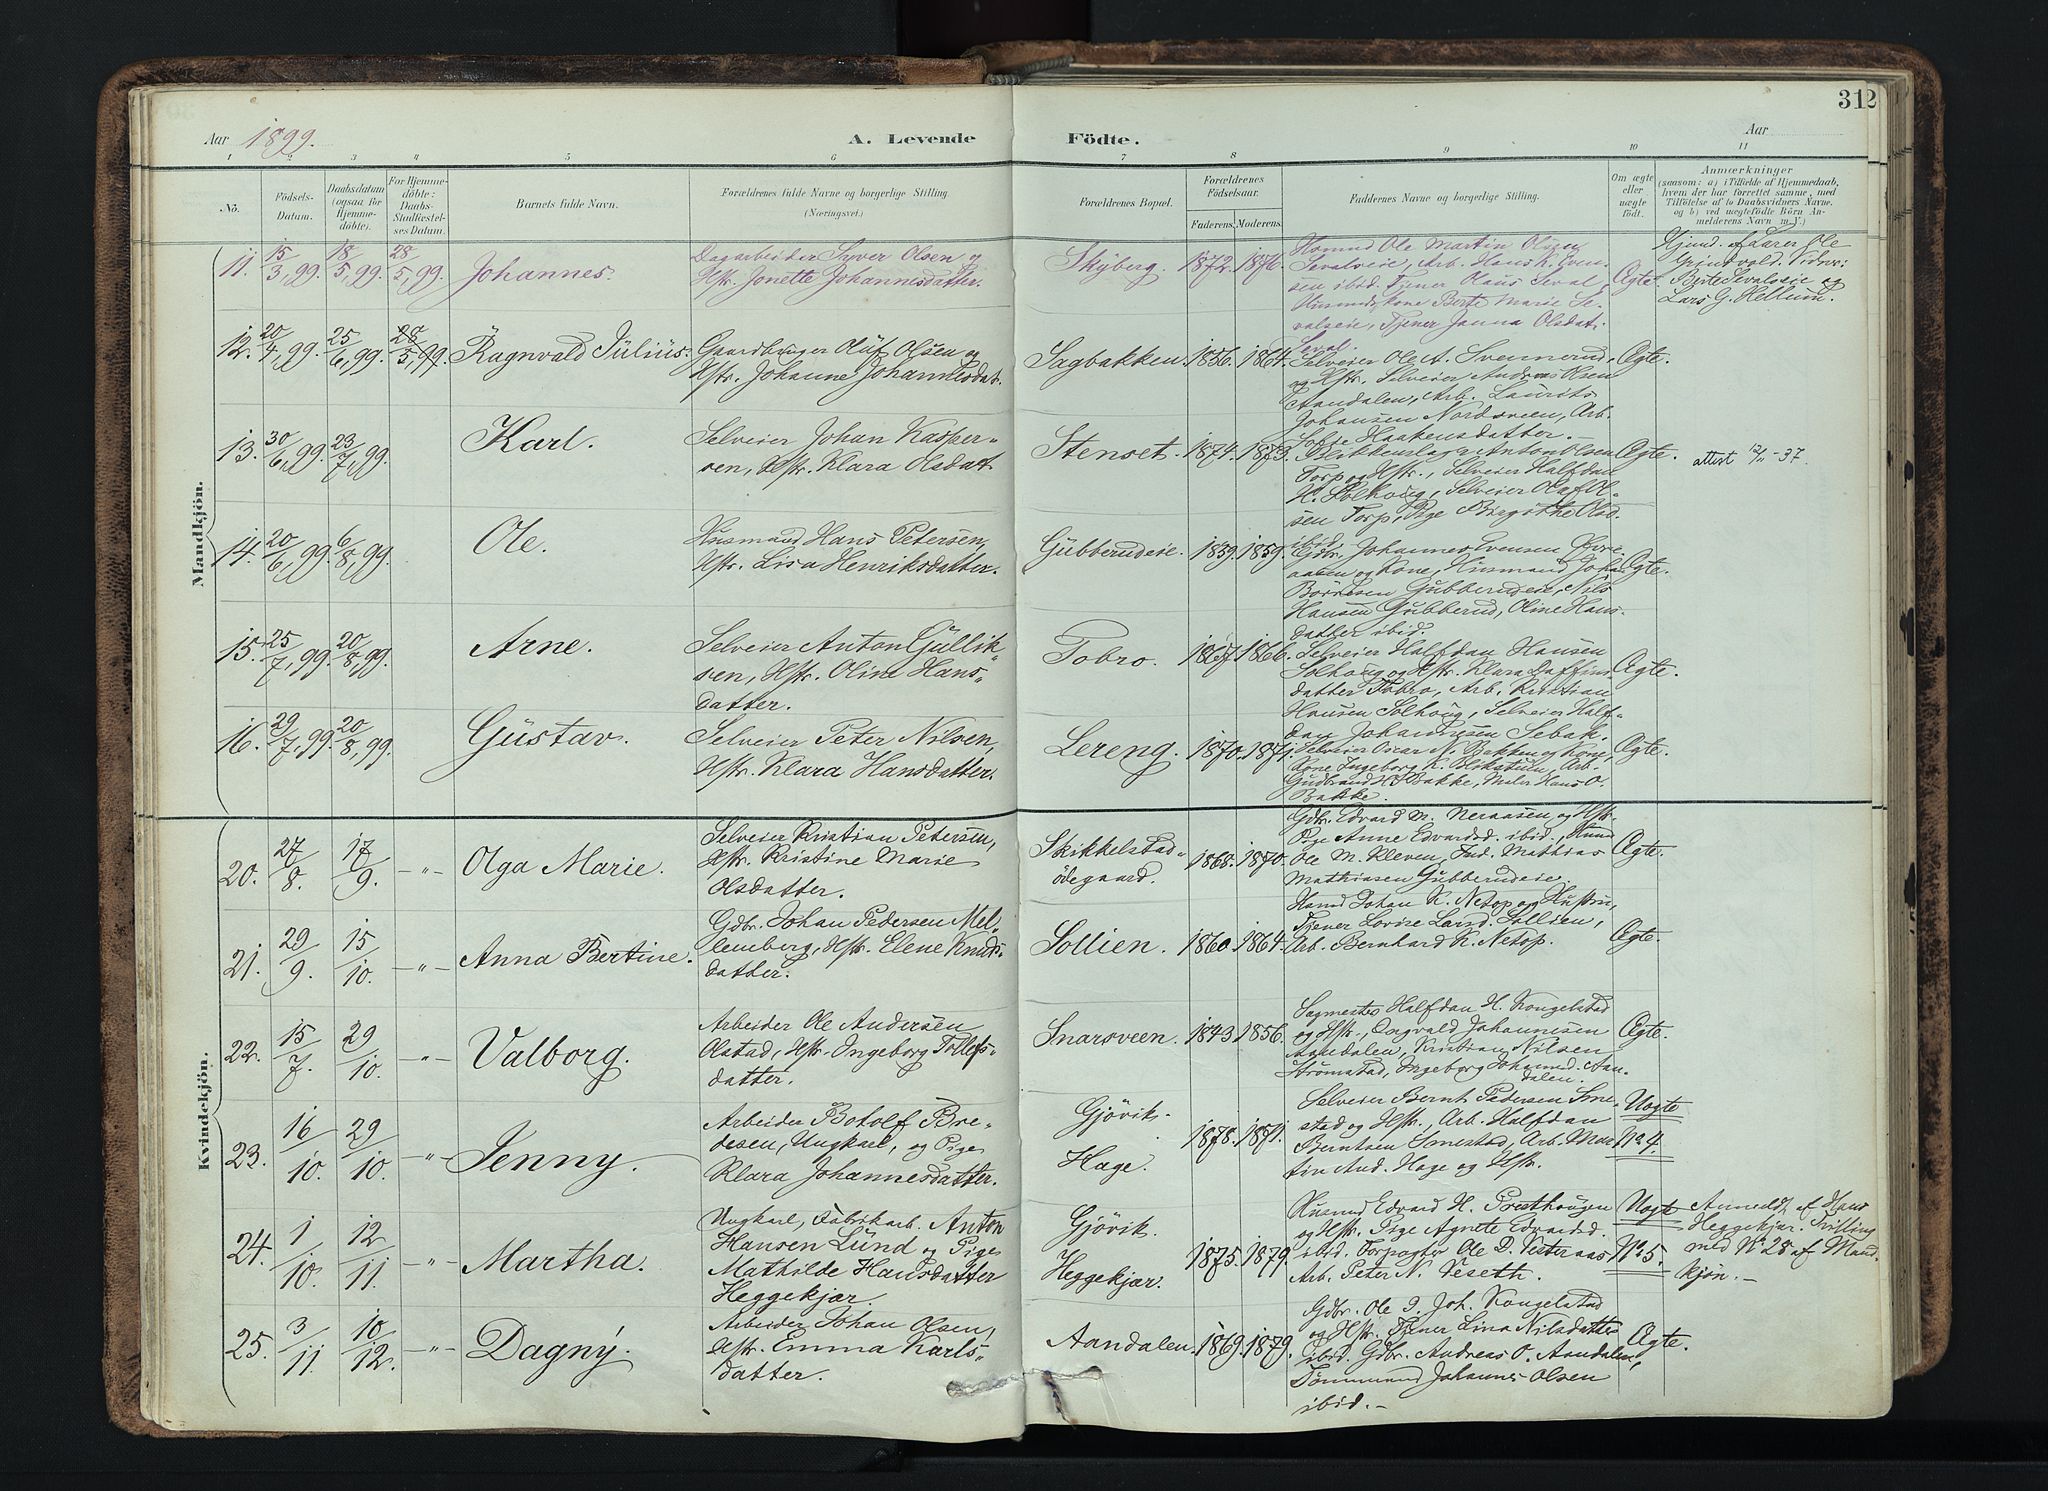 312
Aar 1899. A. Levende Födte. Aar
1 2 3 4 5 6 7 8 9 10 11
No. Födsels-Datum. Daabsdatum (ogsaa for Hjemme-döbte). For Hjemme-döbte: Daabs-Stadfæstel-ses Datum. Barnets fulde Navn. Forældrenes fulde Navne og borgerlige Stilling. (Næringsvei.) Forældrenes Bopæl. Forældrenes Födselsaar. Faderens. Moderens. Faddernes Navne og borgerlige Stilling. Om ægte eller uægte födt. Anmærkninger (saasom: a) i Tilfælde af Hjemmedaab, hvem der har forrettet samme, med Tilföielse af to Daabsvidners Navne, og b) ved uegtefödte Börn An-melderens Navn m. V.)
Mandkjön.
11. 15/3, 99. 18/5, 99. 28/5, 99. Johannes.
Dagarbeider Syver Olsen og
Hstr. Jonette Johannesdatter.
Skyberg. 1872. 1876.
Husmd Ole Martin Olsen
Sevalseie, Arb. Hans K. Even-
sen ibid. Tjener Olaus Seval,
Husmandskone Berte Marie Se-
valseie, Tjener Janna Olsdat.
Seval.
Ægte.
Hjmd. af Lærer Ole
Grindvold. Vidner:
Berte Sevalseie og
Lars G. Hellum.
12. 20/4, 99. 25/6, 99. 28/5, 99. Ragnvald Julius.
Gaardbruger Oluf Olsen og
Hstr. Johanne Johannesdat.
Sagbakken. 1856. 1864.
Selveier Ole A. Svennerud,
og Hstr. Selveier Andreas Olsen
Aandalen, Arb. Laurits
Johansen Nordsveen, Arb.
Sofie Haakensdatter.
Ægte.
13. 30/6, 99. 23/7, 99. Karl.
Selveier Johan Kasper-
sen, Hstr. Klara Olsdatt.
Stenset. 1874. 1873.
Blikkenslager Anton Olsen
Torp og Hstr., Selveier Halfdan
H. Solhoug, Selveier Olaf Ol-
sen Torp, Pige Birgithe Olsd.
ibid.
Ægte.
attest 12/11 -37.
14. 20/6, 99. 6/8, 99. Ole.
Husmand Hans Petersen,
Hstr. Lisa Henriksdatter.
Gubberudeie. 1839. 1859.
Gdbr. Johannes Evensen Øvre
aasen og Kone, Husmand Johs
Børresen Gubberudeie, Nils
Hansen Gubberud, Oline Hans-
datter ibid.
Ægte.
15. 25/7, 99. 20/8, 99. Arne.
Selveier Anton Gullik-
sen, Hstr. Olina Hans-
datter.
Tobro. 1867. 1866.
Selveier Halfdan Hansen
Solhoug og Hstr. Klara Daffins
datter Tobro, Arb. Kristian
Hansen Solhoug, Selveier Half-
dan Johannesen Sebak.
Ægte.
16. 29/7, 99. 20/8, 99. Gustav.
Selveier Peter Nilsen,
Hstr. Klara Hansdatter.
Lereng. 1870. 1871.
Selveier Oscar N. Bakken og Kone,
Kone Ingeborg K. Blikstum, Arb.
Gudbrand H. Bakke, Maler Hans O.
Bakke.
Ægte.
Kvindekjön.
20. 27/8. 17/9. -"- Olga Marie.
Selveier Kristian Petersen,
Hstr. Kristine Marie
Olsdatter.
Skikkelstad-
ødegaard. 1868. 1870.
Gdbr. Edvard M. Neraasen, og Hstr.
Pige Anne Edvardsd. ibid., Husmd
Ole M. Kleven, Ind. Mathias
Mathiasen Gubberudeie.
Ægte.
21. 29/9. 15/10. -"- Anna Bertine.
Gdbr. Johan Pedersen Mel-
lemberg, Hstr. Elene Knuds-
datter.
Sollien. 1860. 1864.
Husmd Johan K. Netop og Hustru,
Tjener Lovise Laurd. Sollien,
Arb. Bernhard K. Netop.
Ægte.
22. 15/7. 29/10. -"- Valborg.
Arbeider Ole Andersen
Olstad, Hstr. Ingeborg Tollefs-
datter.
Snarsveen. 1843. 1856.
Sagmester Halfdan H. Kongelstad
og Hstr., Ongvald Johannesen
Aandalen, Kristian Nilsen
Strømstad, Ingeborg Johannesd. Aan-
dalen.
Ægte.
23. 16/10. 29/10. -"- Jenny.
Arbeider Botolf Bre-
desen, Ungkarl, og Pige
Klara Johannesdatter.
Gjøvik.
Hage. 1878. 1871.
Selveier Bernt Pedersen Sme-
stad og Hstr., Arb. Halfdan
Berntsen Smestad, Arb. Mar
tin And. Hage og Hstr.
Uægte
No 4.
24. 1/10. 12/11. -"- Martha.
Ungkarl, Fabrikarb. Anton
Hansen Lund og Pige
Mathilde Hansdatter
Heggekjær.
Gjøvik.
Heggekjær. 1875. 1879.
Husmd Edvard H. Presthaugen
og Hstr. Pige Agnete Edvardsd.
ibid. Forpagter Ole D. Vesteraas
Arb. Peter N. Veseth.
Uægte
No 5.
Anmeldt af Hans
Heggekjær. Tvilling
med No 28 af Mand-
kjön. -
25. 3/11. 10/12. -"- Dagny.
Arbeider Johan Olsen,
Hstr. Emma Karls-
datter.
Aandalen. 1869. 1879.
Gdbr. Ole J. Joh. Kongelstad
og Hstr. Tjener Lina Nilsdatter
ibid. Gdbr. Andreas O. Aandalen,
Tømmermd Johannes Olsen
ibid. -
Ægte.